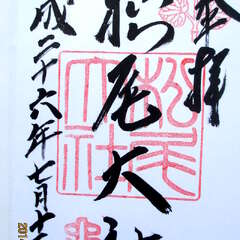 奉拝
松尾大社
成二十六年七月十
松尾
大社